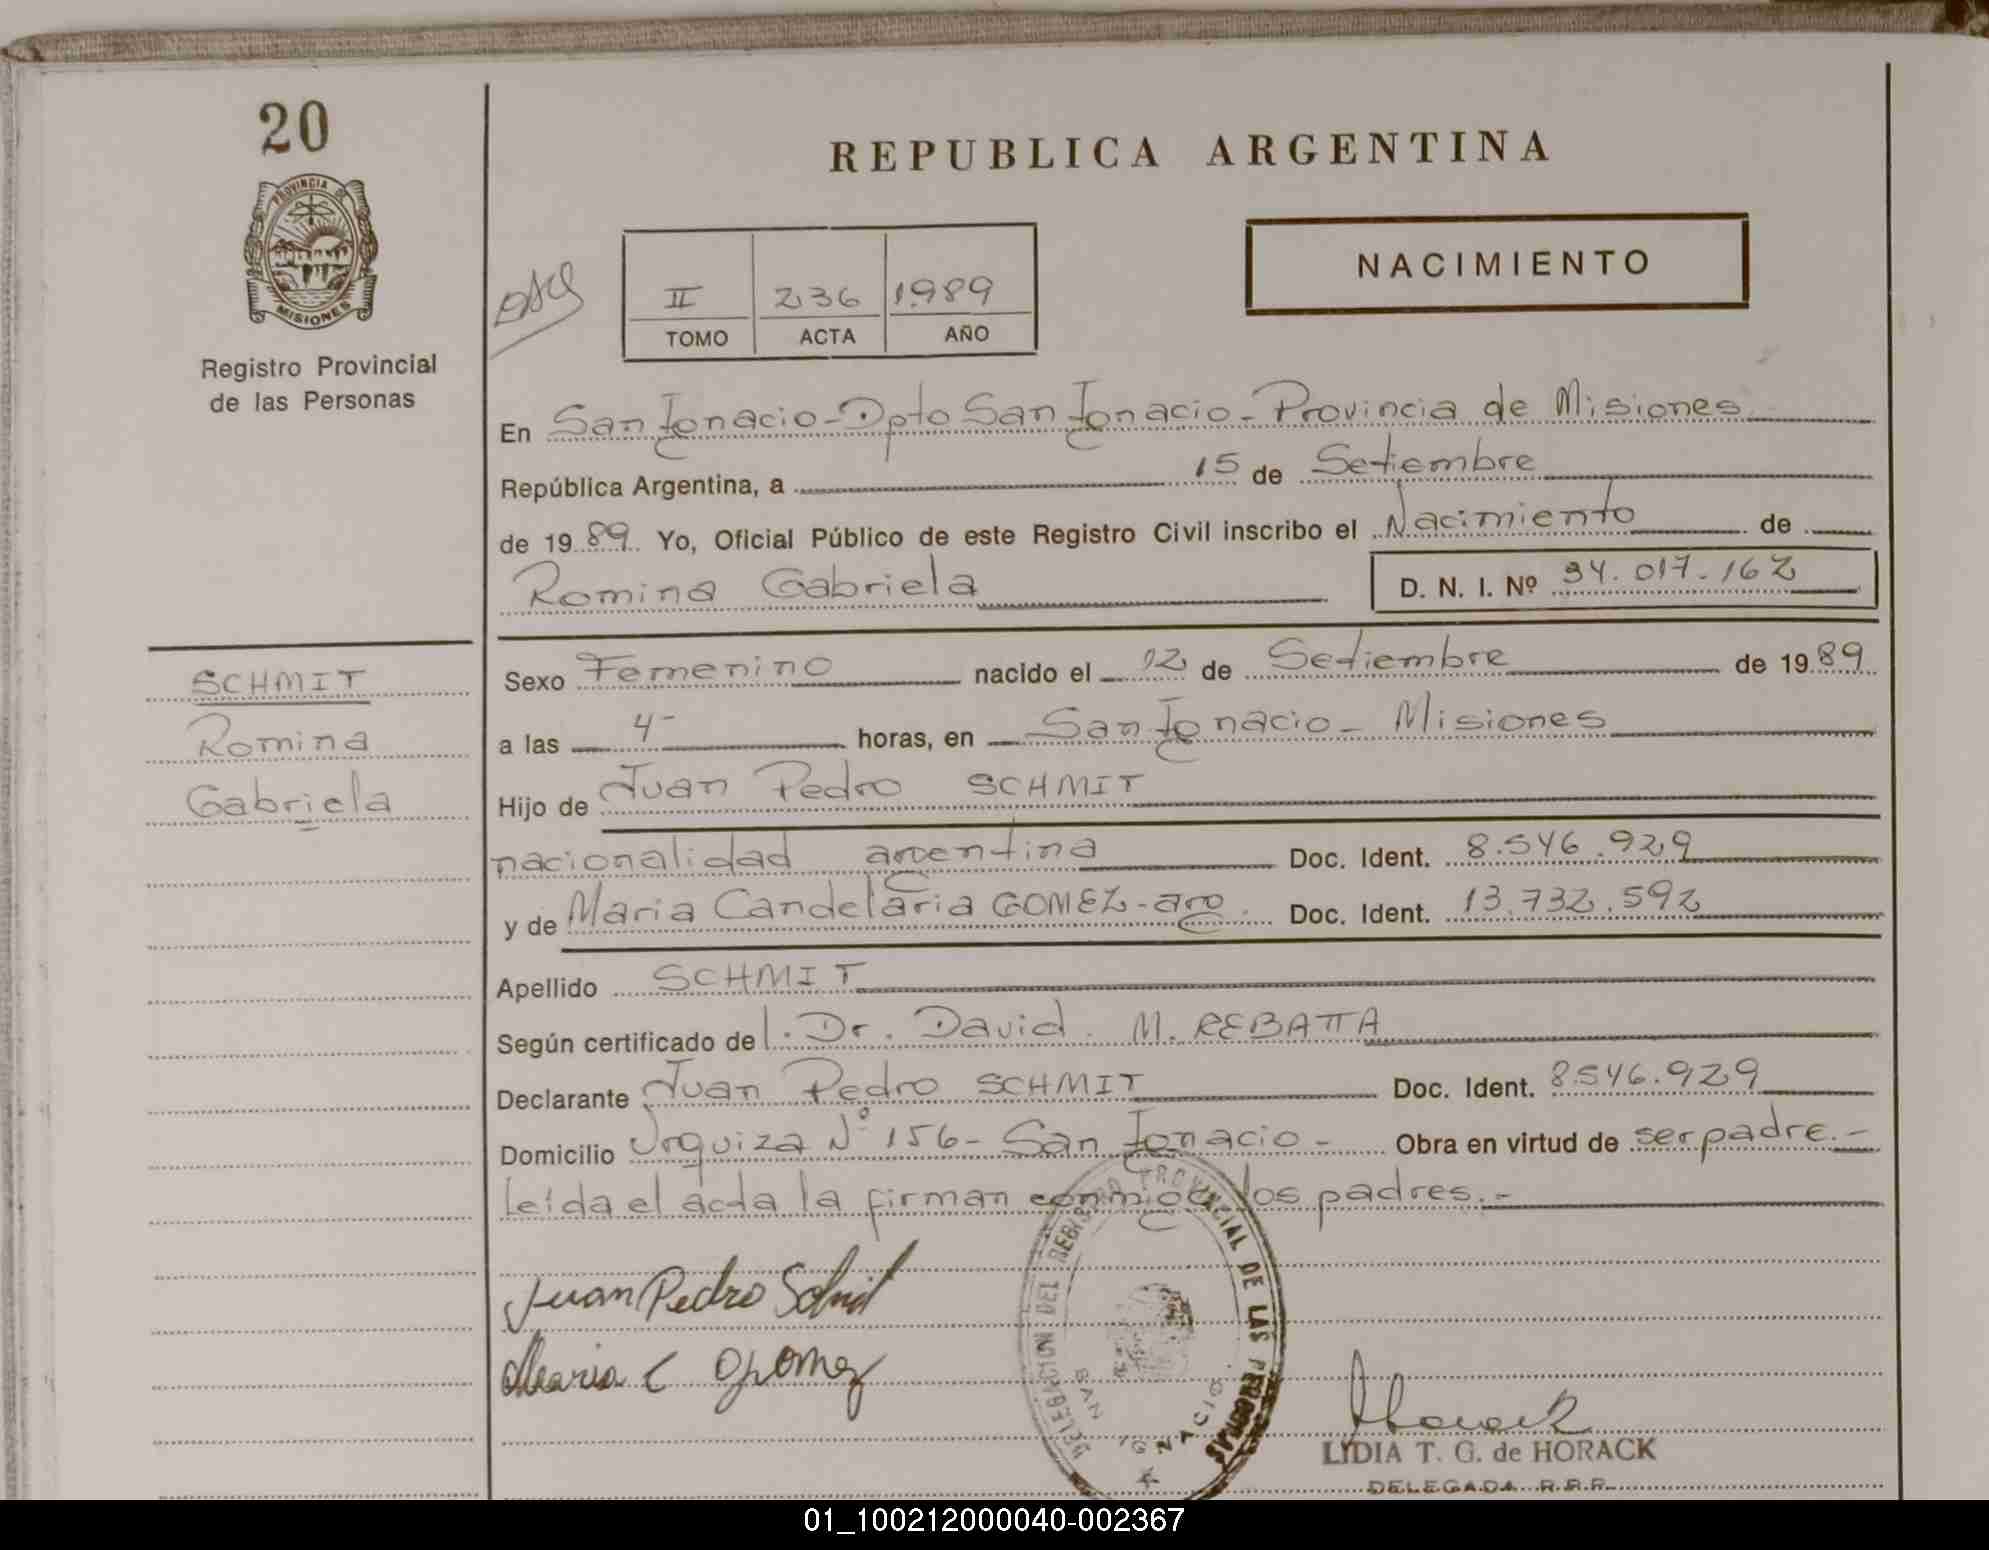 20
PROVINCIA DE
MISIONES
Registro Provincial
de las Personas
REPUBLICA ARGENTINA
NACIMIENTO
II 236 1989
TOMO ACTA AÑO
En San Ignacio - Dpto San Ignacio - Provincia de Misiones
República Argentina, a 15 de Setiembre
de 1989. Yo, Oficial Público de este Registro Civil inscribo el Nacimiento de
Romina Gabriela D. N. I. Nº 34.017.162
SCHMIT
Romina
Gabriela
Sexo Femenino nacido el 12 de Setiembre de 1989
a las 4- horas, en San Ignacio - Misiones
Hijo de Juan Pedro SCHMIT
nacionalidad argentina Doc. Ident. 8.546.929
y de Maria Candelaria GOMEZ - arg. Doc. Ident. 13.732.592
Apellido SCHMIT
Según certificado de l. Dr. David M. REBATTA
Declarante Juan Pedro SCHMIT Doc. Ident. 8.546.929
Domicilio Urquiza Nº 156 - San Ignacio - Obra en virtud de ser padre.-
Leída el acta la firman conmigo los padres.-
Juan Pedro Schmit
Maria C Gomez
DELEGACION DEL REGISTRO PROVINCIAL DE LAS PERSONAS
SAN IGNACIO
Horack
LIDIA T. G. de HORACK
DELEGADA R.P.P.
01_100212000040-002367